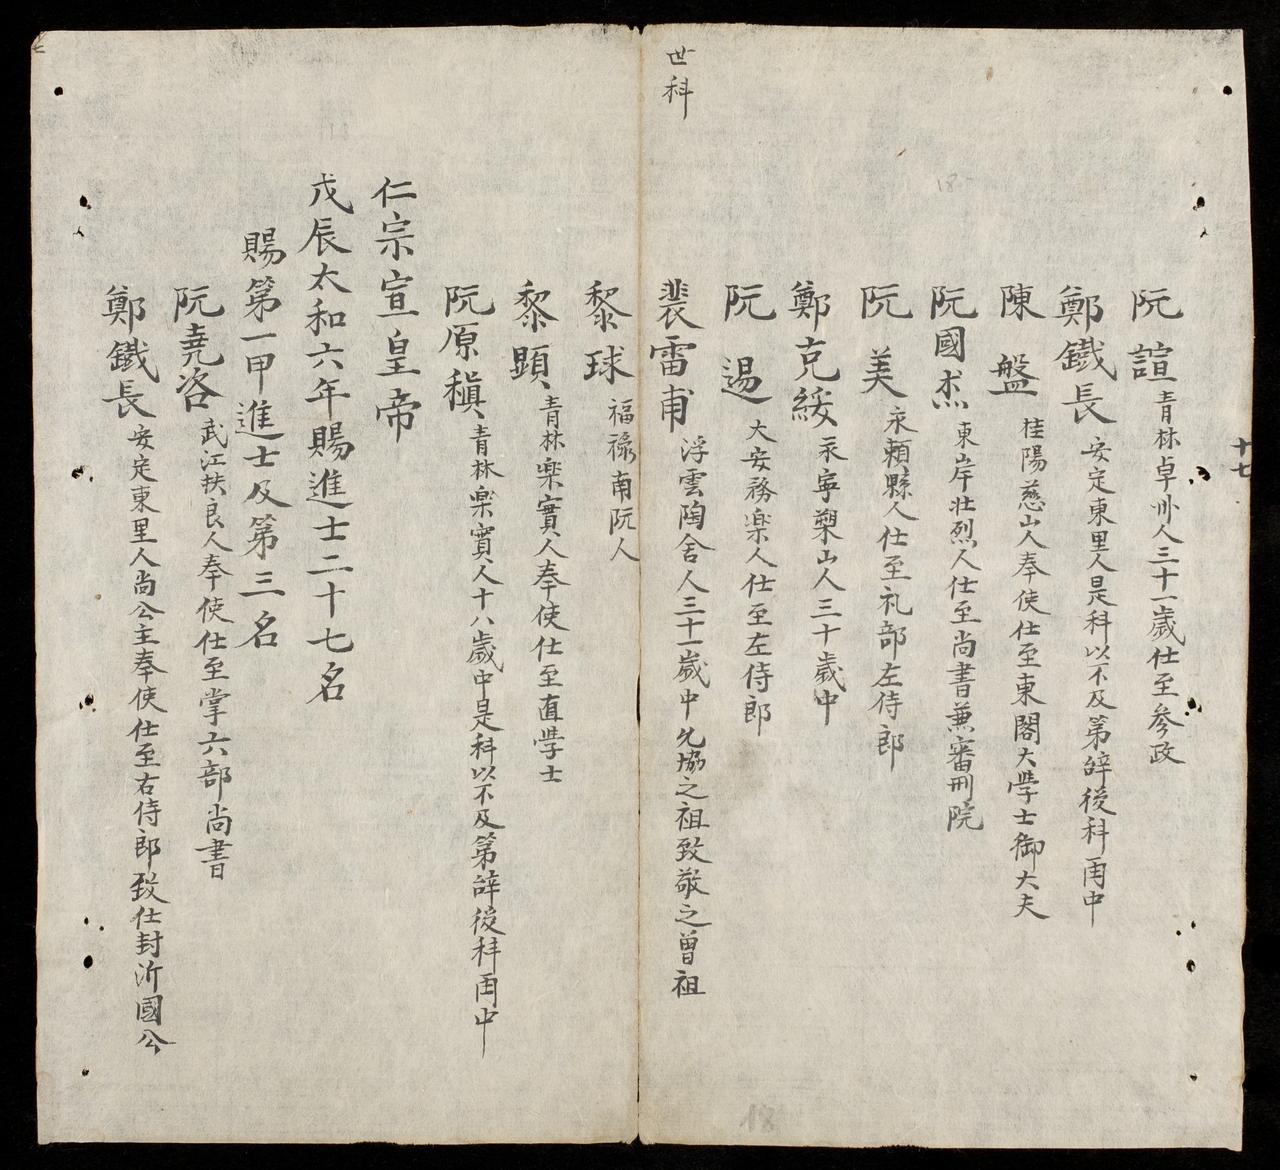 十七
阮諠青林卓州人三十一歲仕至參政
鄭鐵長安定東里人是科以不及第辞後科再中
陳盤桂陽慈山人奉使仕至東閣大學士御大夫
阮國杰東岸壮烈人仕至尚書兼審刑院
阮美永賴縣人仕至礼部左侍郎
鄭克綏永寧塑山人三十歲中
阮逿大安務楽人仕至左侍郎
世科
裴雷甫浮雲陶舍人三十一歲中允協之祖致敬之曾祖
黎球福禄南阮人
黎顕青林楽實人奉使仕至直學士
阮原稹青林楽實人十八歲中是科以不及第辞後科再中
仁宗宣皇帝
戊辰太和六年賜進士二十七名
賜第一甲進士及第三名
阮堯咨武江扶良人奉使仕至掌六部尚書
鄭鐵長安定東里人尚公主奉使仕至右侍郎致仕封沂國公
18
18